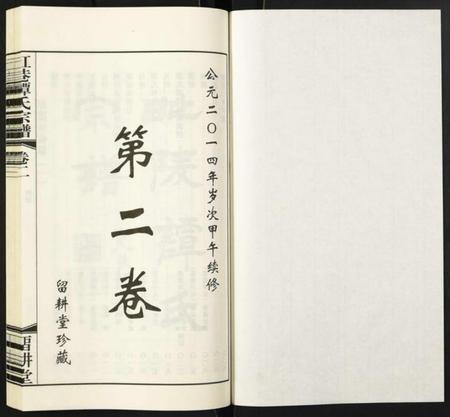 公元二〇一四年岁次甲午续修
第二卷
留耕堂珍藏
谭氏宗谱
卷二
留耕堂